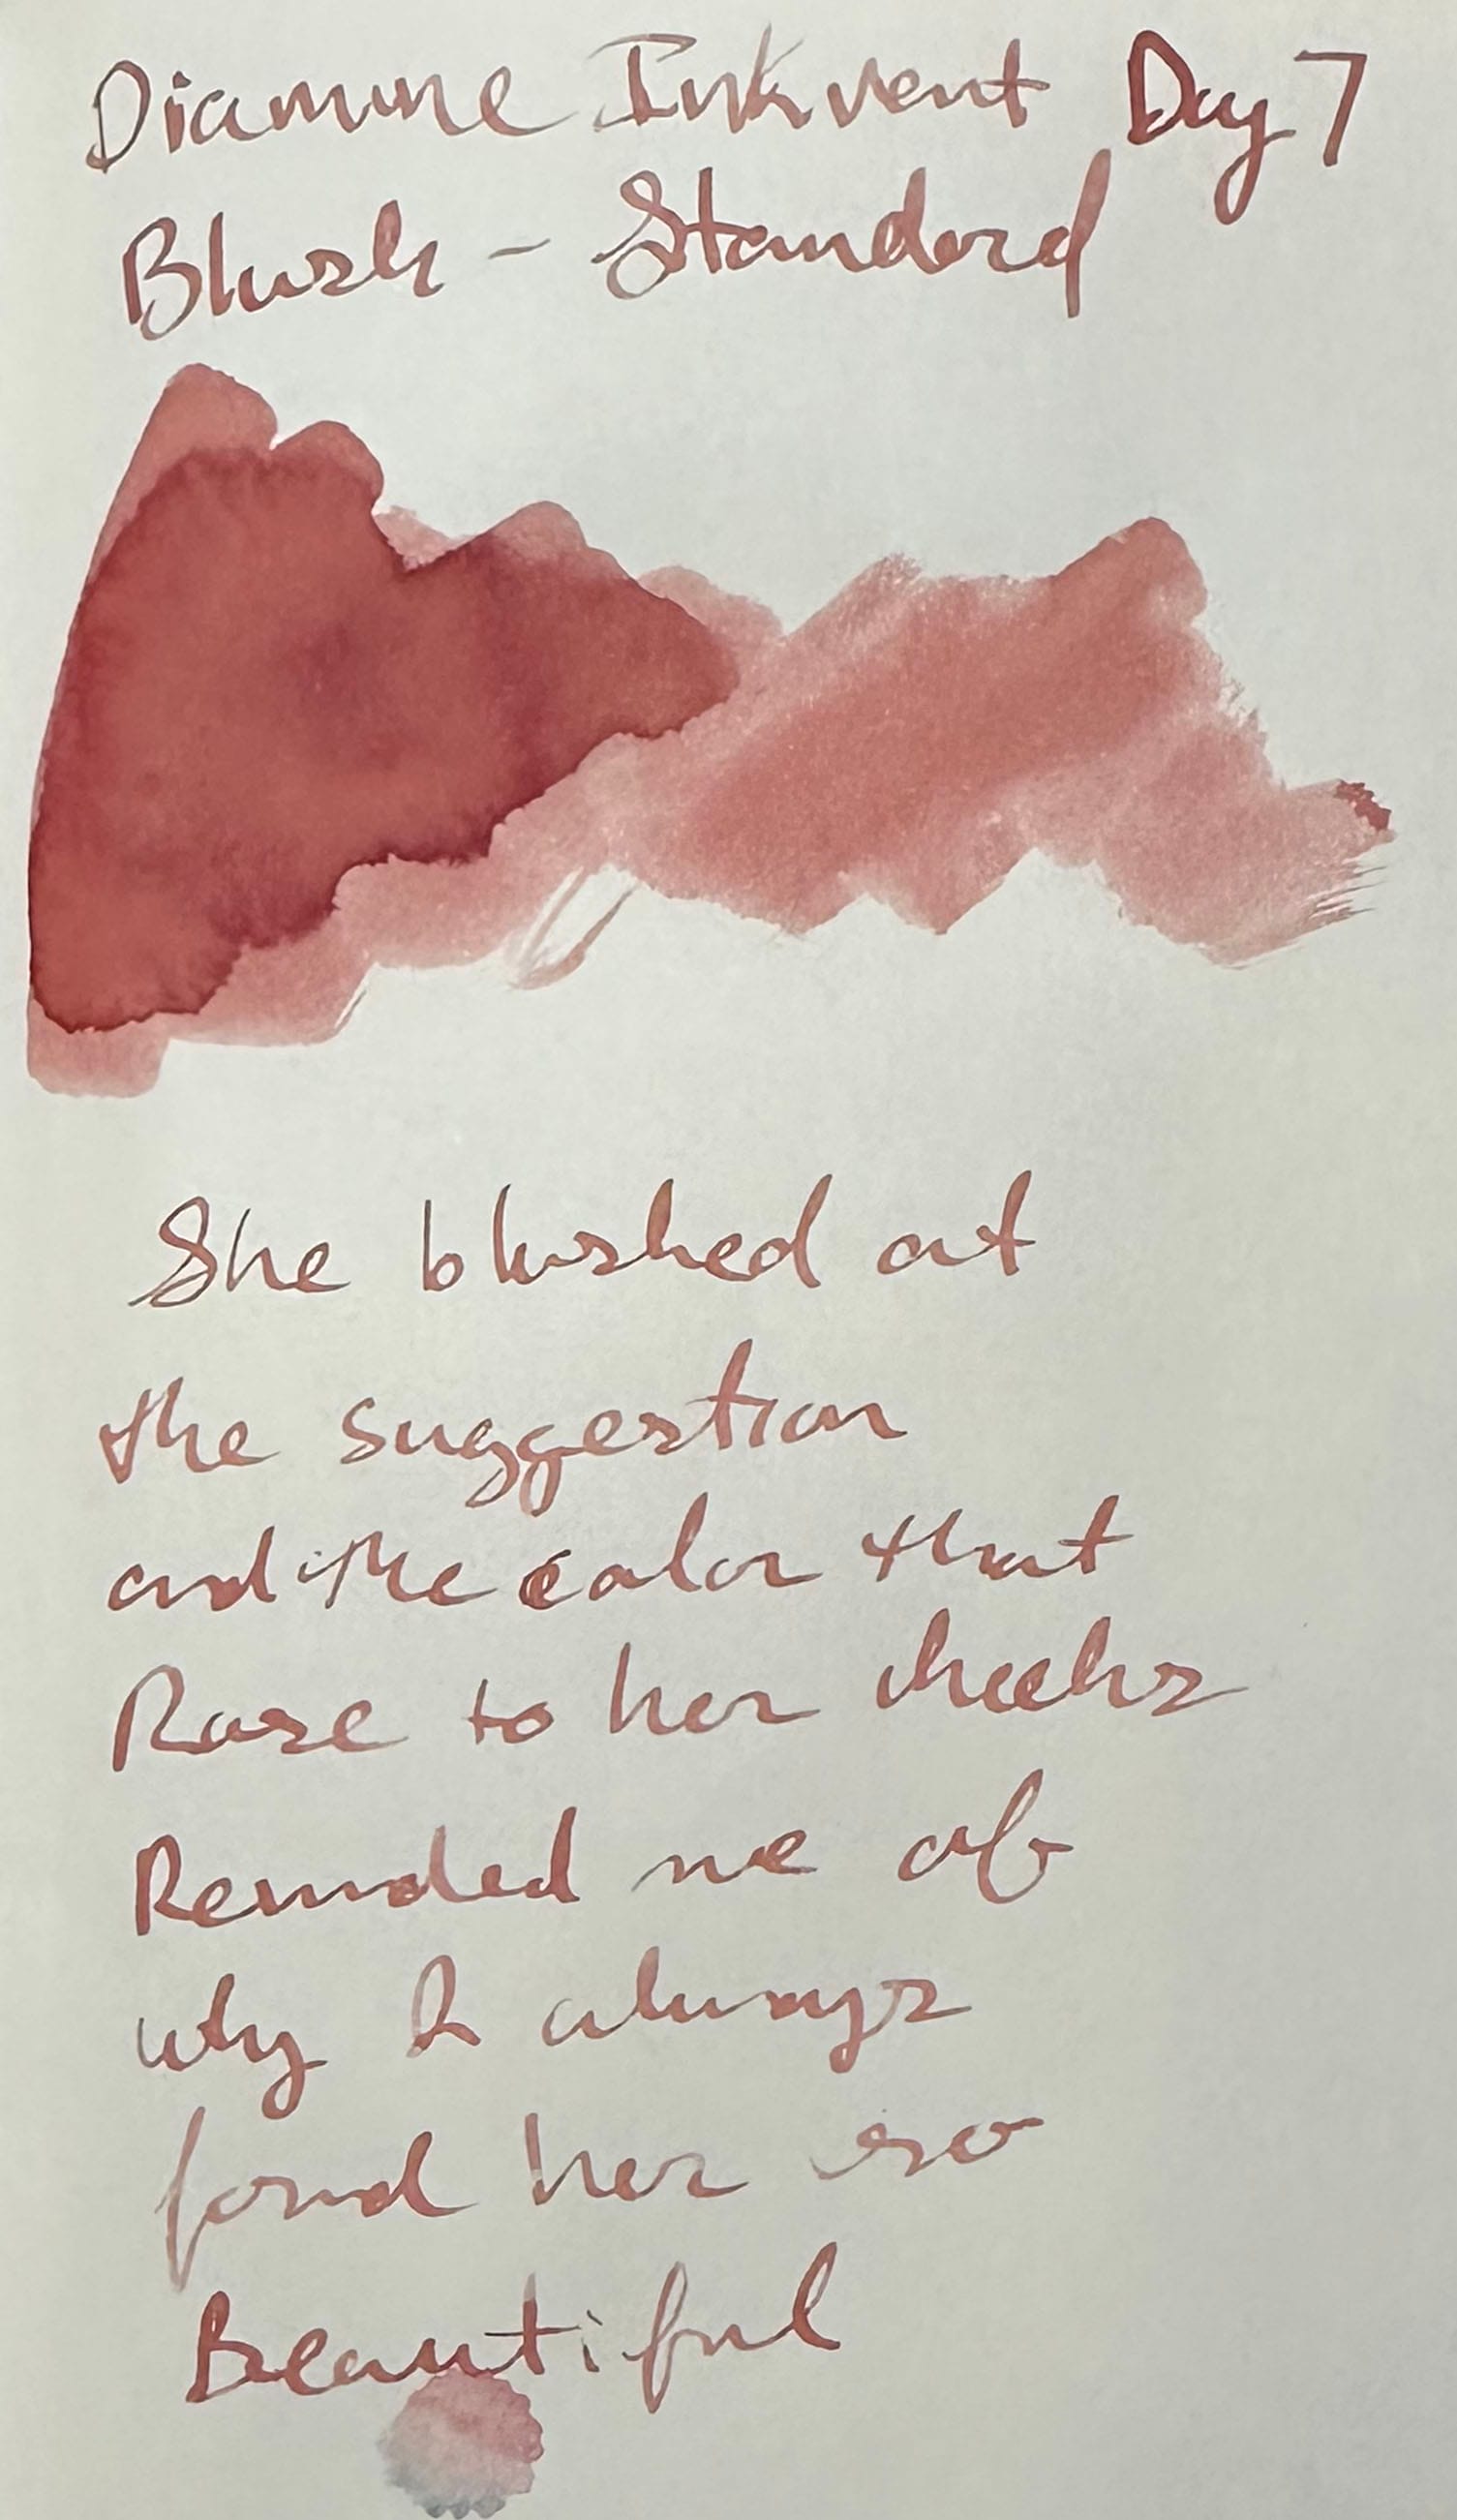 Diamine Inkvent Day 7
Blush - Standard
She blushed at
the suggestion
and the color that
Rose to her cheeks
Reminded me of
why I always
found her so
Beautiful